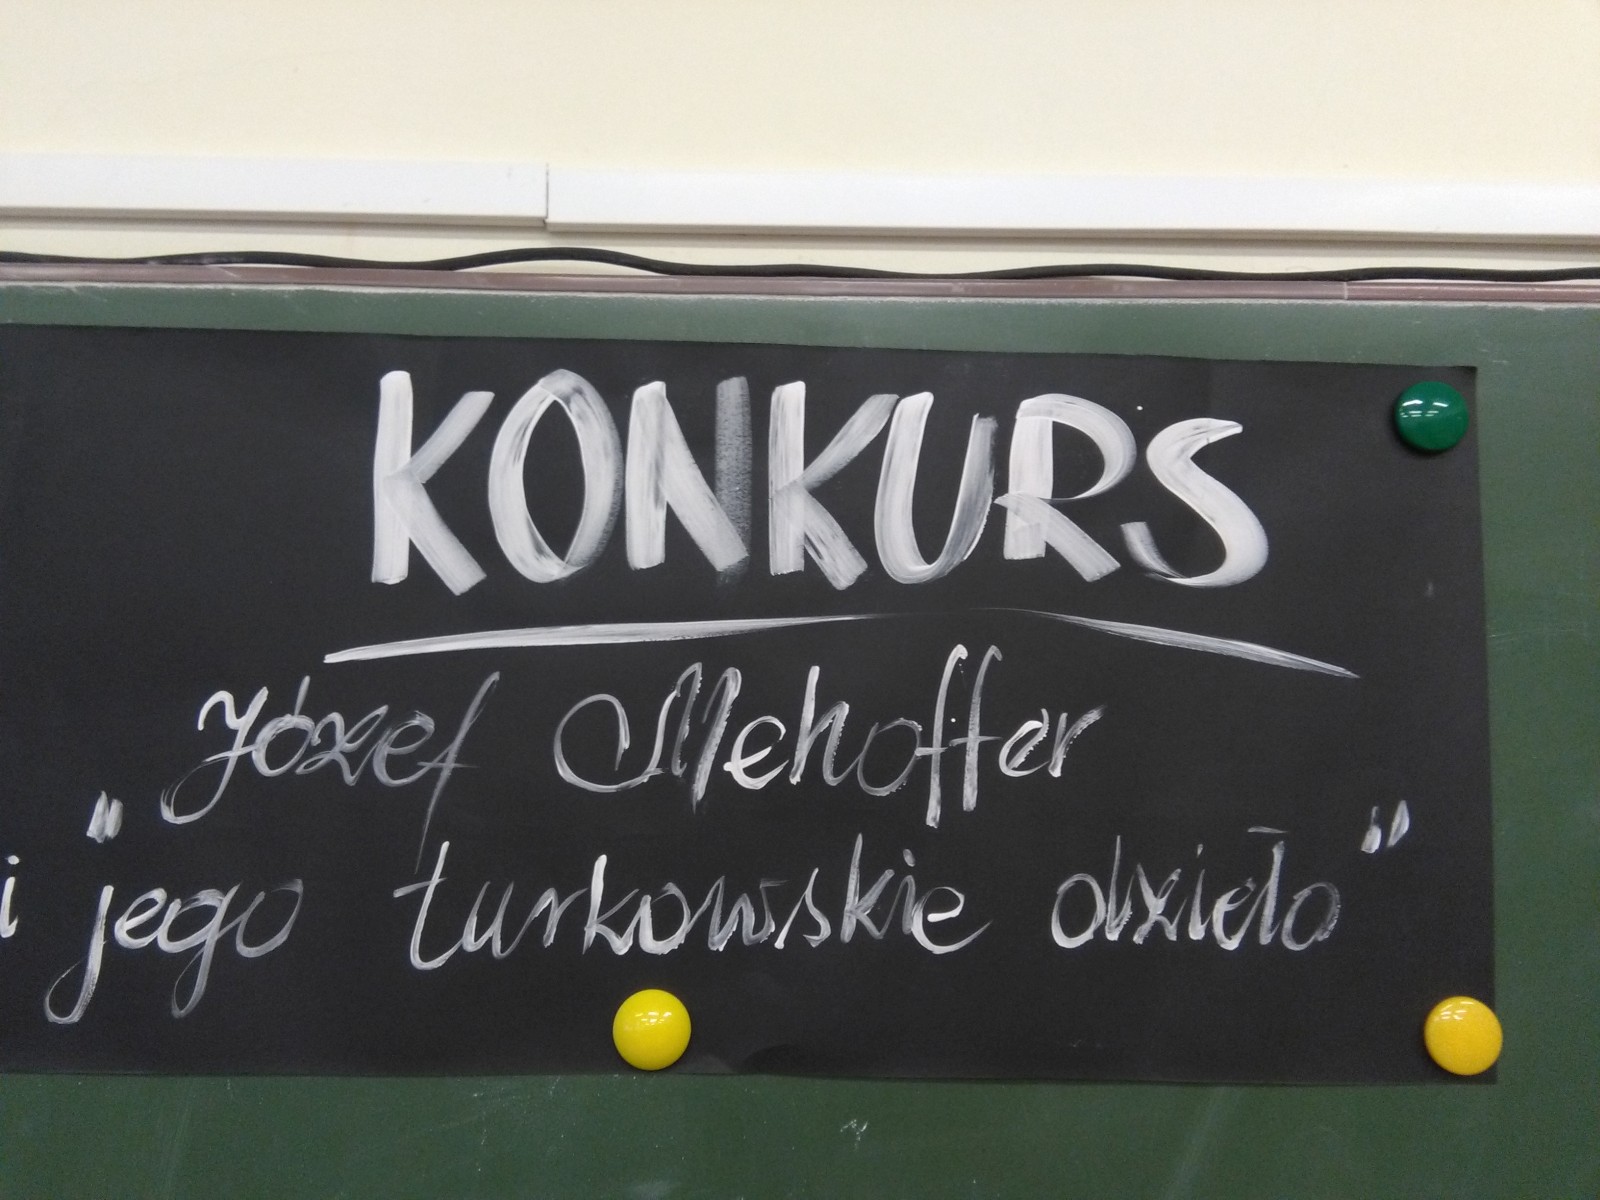 KONKURS
Józef Mehoffer
i "jego turkowskie dzieło"